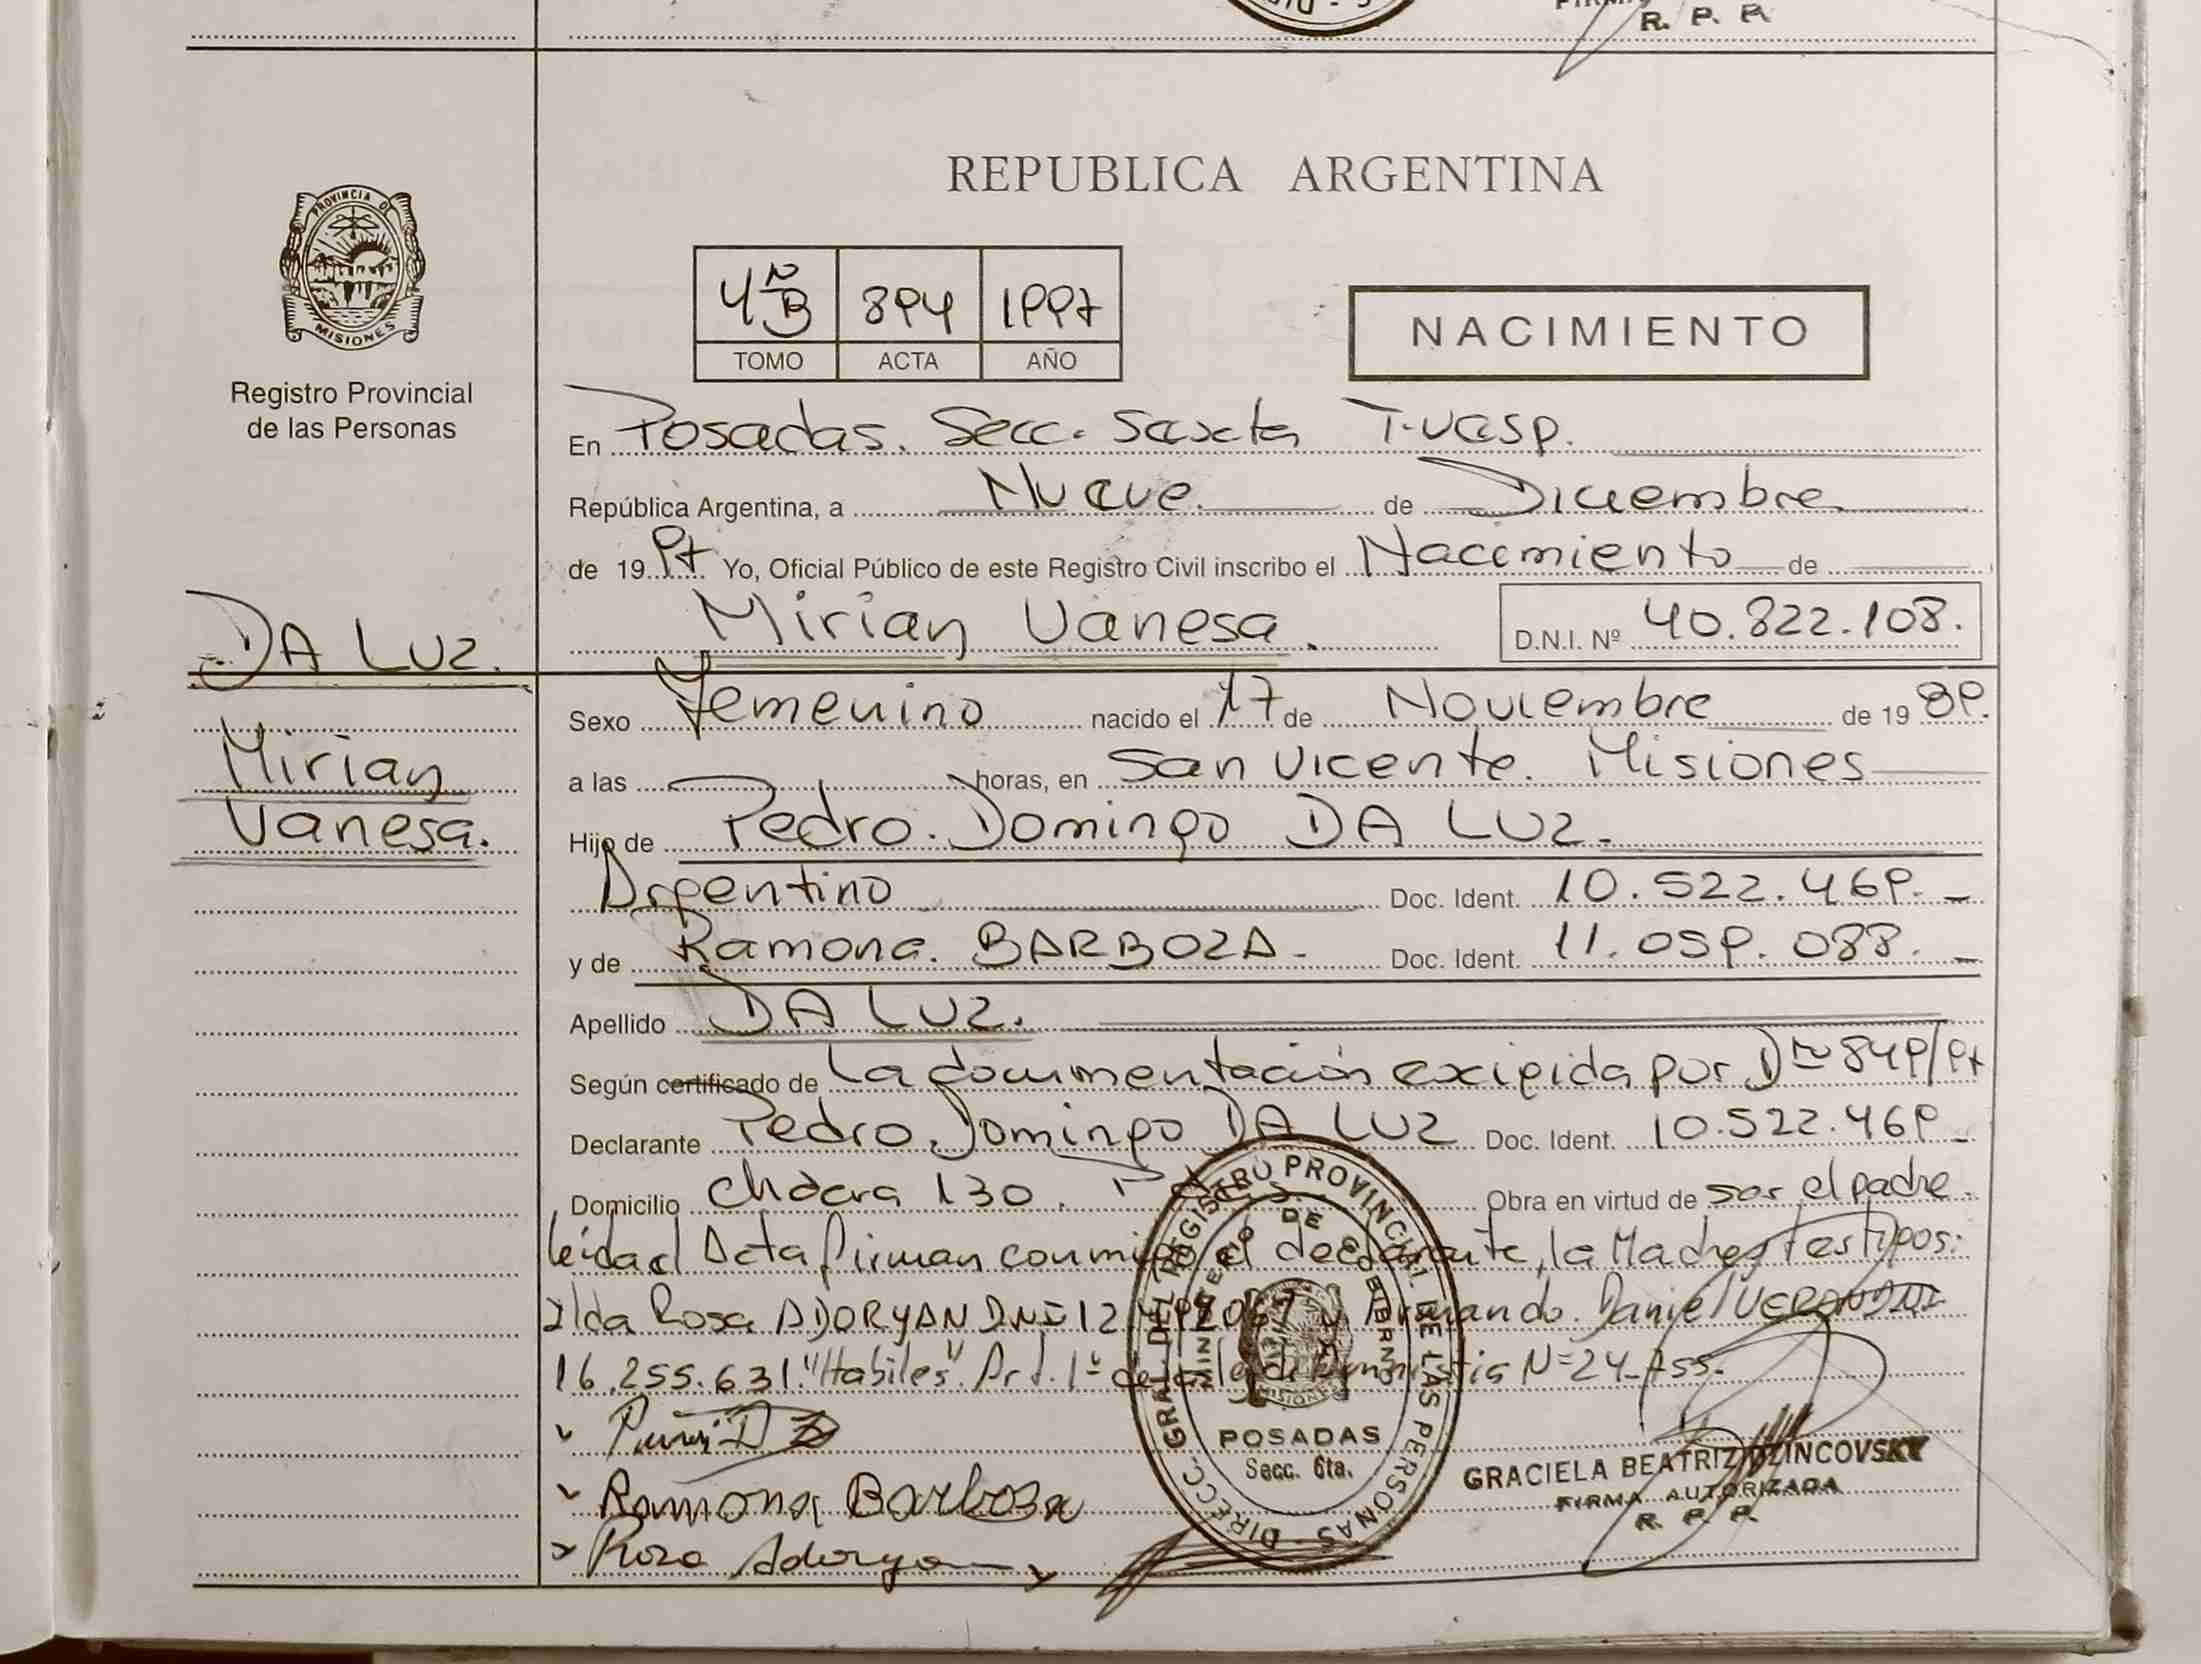 R. P. P.
REPUBLICA ARGENTINA
PROVINCIA DE
MISIONES
Registro Provincial
de las Personas
4 N B 894 1997
TOMO ACTA AÑO
NACIMIENTO
En Posadas. Secc. Sexta
República Argentina, a Nueve de Diciembre
de 1997 Yo, Oficial Público de este Registro Civil inscribo el Nacimiento de
Mirian Vanesa. D.N.I. Nº 40.822.108.
DA LUZ.
Mirian
Vanesa.
Sexo Femenino nacido el 17 de Noviembre de 1989.
a las horas, en San Vicente. Misiones
Hijo de Pedro Domingo DA LUZ.
Argentino Doc. Ident. 10.522.469.
y de Ramona. BARBOZA Doc. Ident. 11.059.088.
Apellido DA LUZ.
Según certificado de La documentación exigida por D 849/97
Declarante Pedro Domingo DA LUZ Doc. Ident. 10.522.469
Domicilio Chacra 130. Obra en virtud de ser el padre.
leída el Acta firman conmigo el declarante, la Madre y testigos:
Ilda Rosa ADORYAN DNI 12 Armando Daniel
16.255.631. "Habiles". Art. 1º de la ley de Amnistia Nº 24.755.
Ramona Barboza
Rosa Adoryan
DIRECC. GRAL. DEL REGISTRO PROVINCIAL DE LAS PERSONAS
MINISTERIO DE GOBIERNO
MISIONES
POSADAS
Secc. 6ta.
GRACIELA BEATRIZ DZINCOVSKY
FIRMA AUTORIZADA
R. P. P.